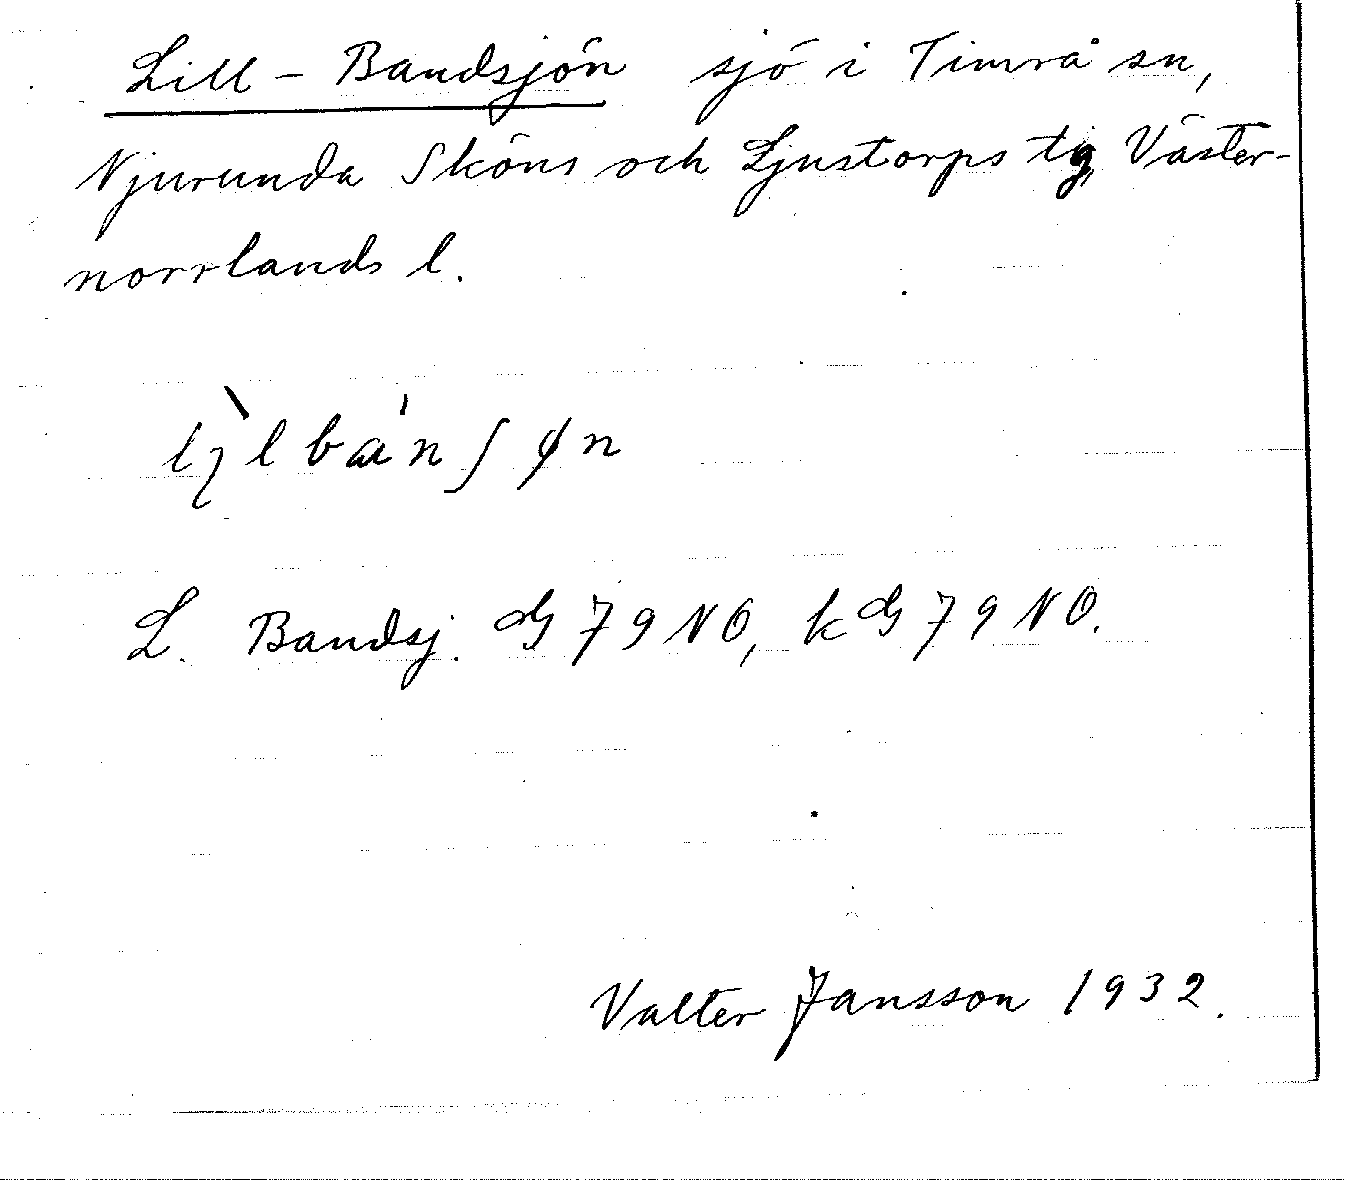 Lill-Bandsjön sjö i Timrå sn,
Njurunda Sköns och Ljustorps tg, Väster-
norrlands l.
L. Bandsj. G 79 NO, kG 79 NO.
Valter Jansson 1932.